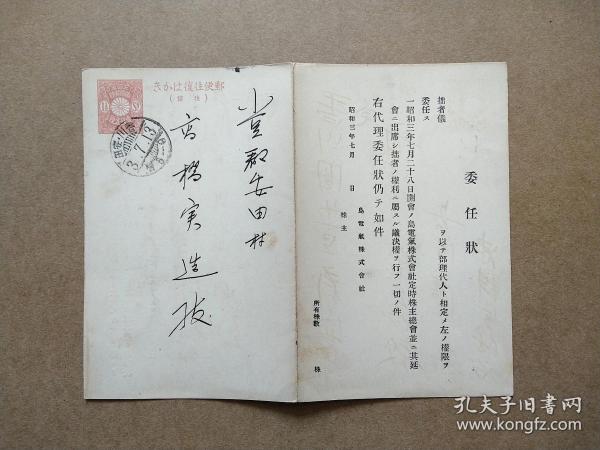 委任狀
拙者儀　　ヲ以テ部理代人ト相定メ左ノ權限ヲ
委任ス
一昭和三年七月二十八日開會ノ島電氣株式會社定時株主總會並ニ其延
會ニ出席シ拙者ノ權利ニ屬スル議決權ヲ行フ一切ノ件
右代理委任狀仍テ如件
昭和三年七月　日
島電氣株式會社
株主
所有株數　株
郵便往復はがき
(往信)
3.7.13
郡安田村
高橋実造殿
孔夫子旧书网
www.kongfz.com